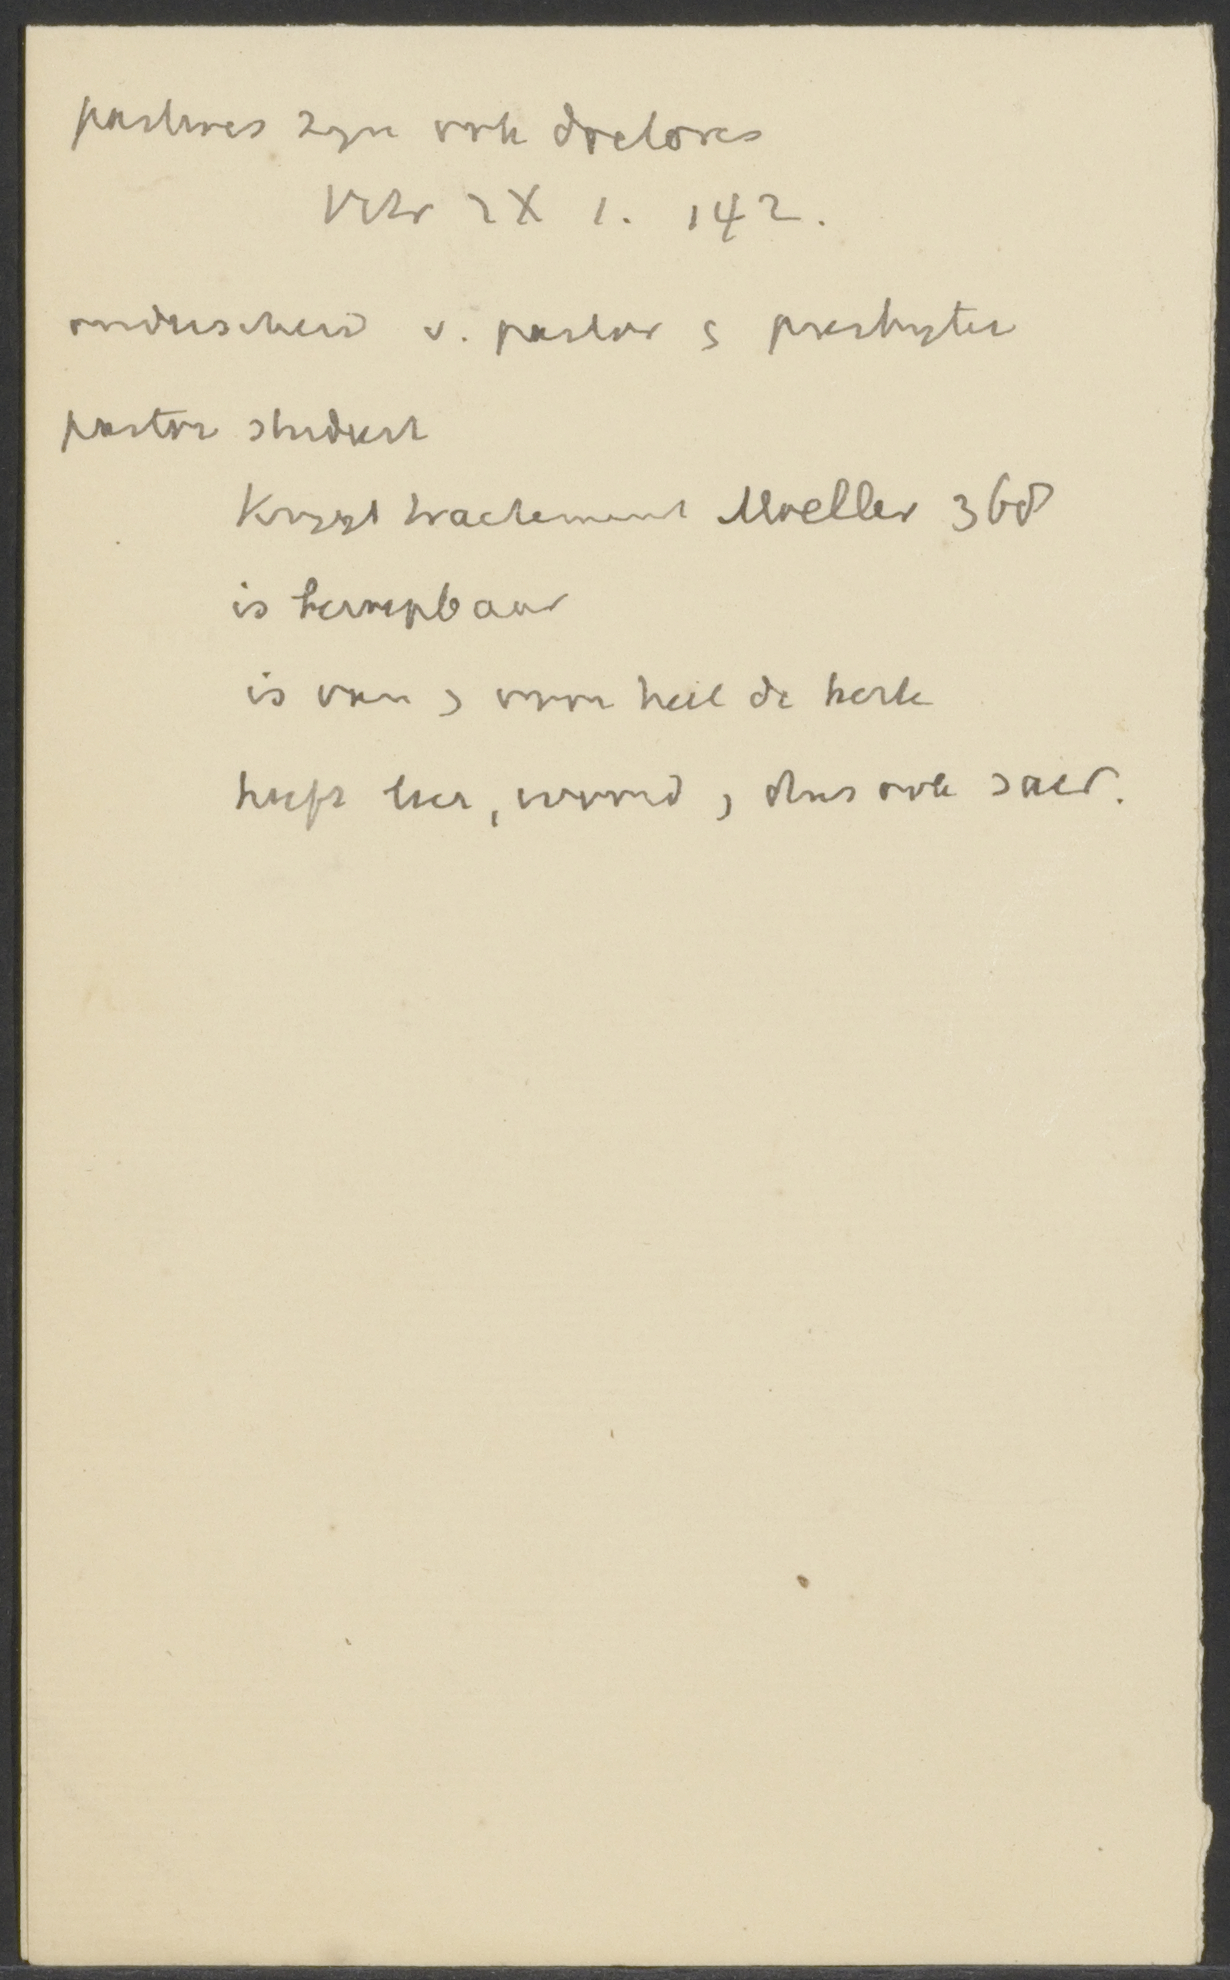 pastores zyn ook doctores
Vitr IX 1. 142.
onderscheid v. pastor & presbyter
pastor studeert
Krygt tractement Moeller 368
is beroepbaar
is van & voor heel de kerk
heeft leer, woord, dus ook sacr.